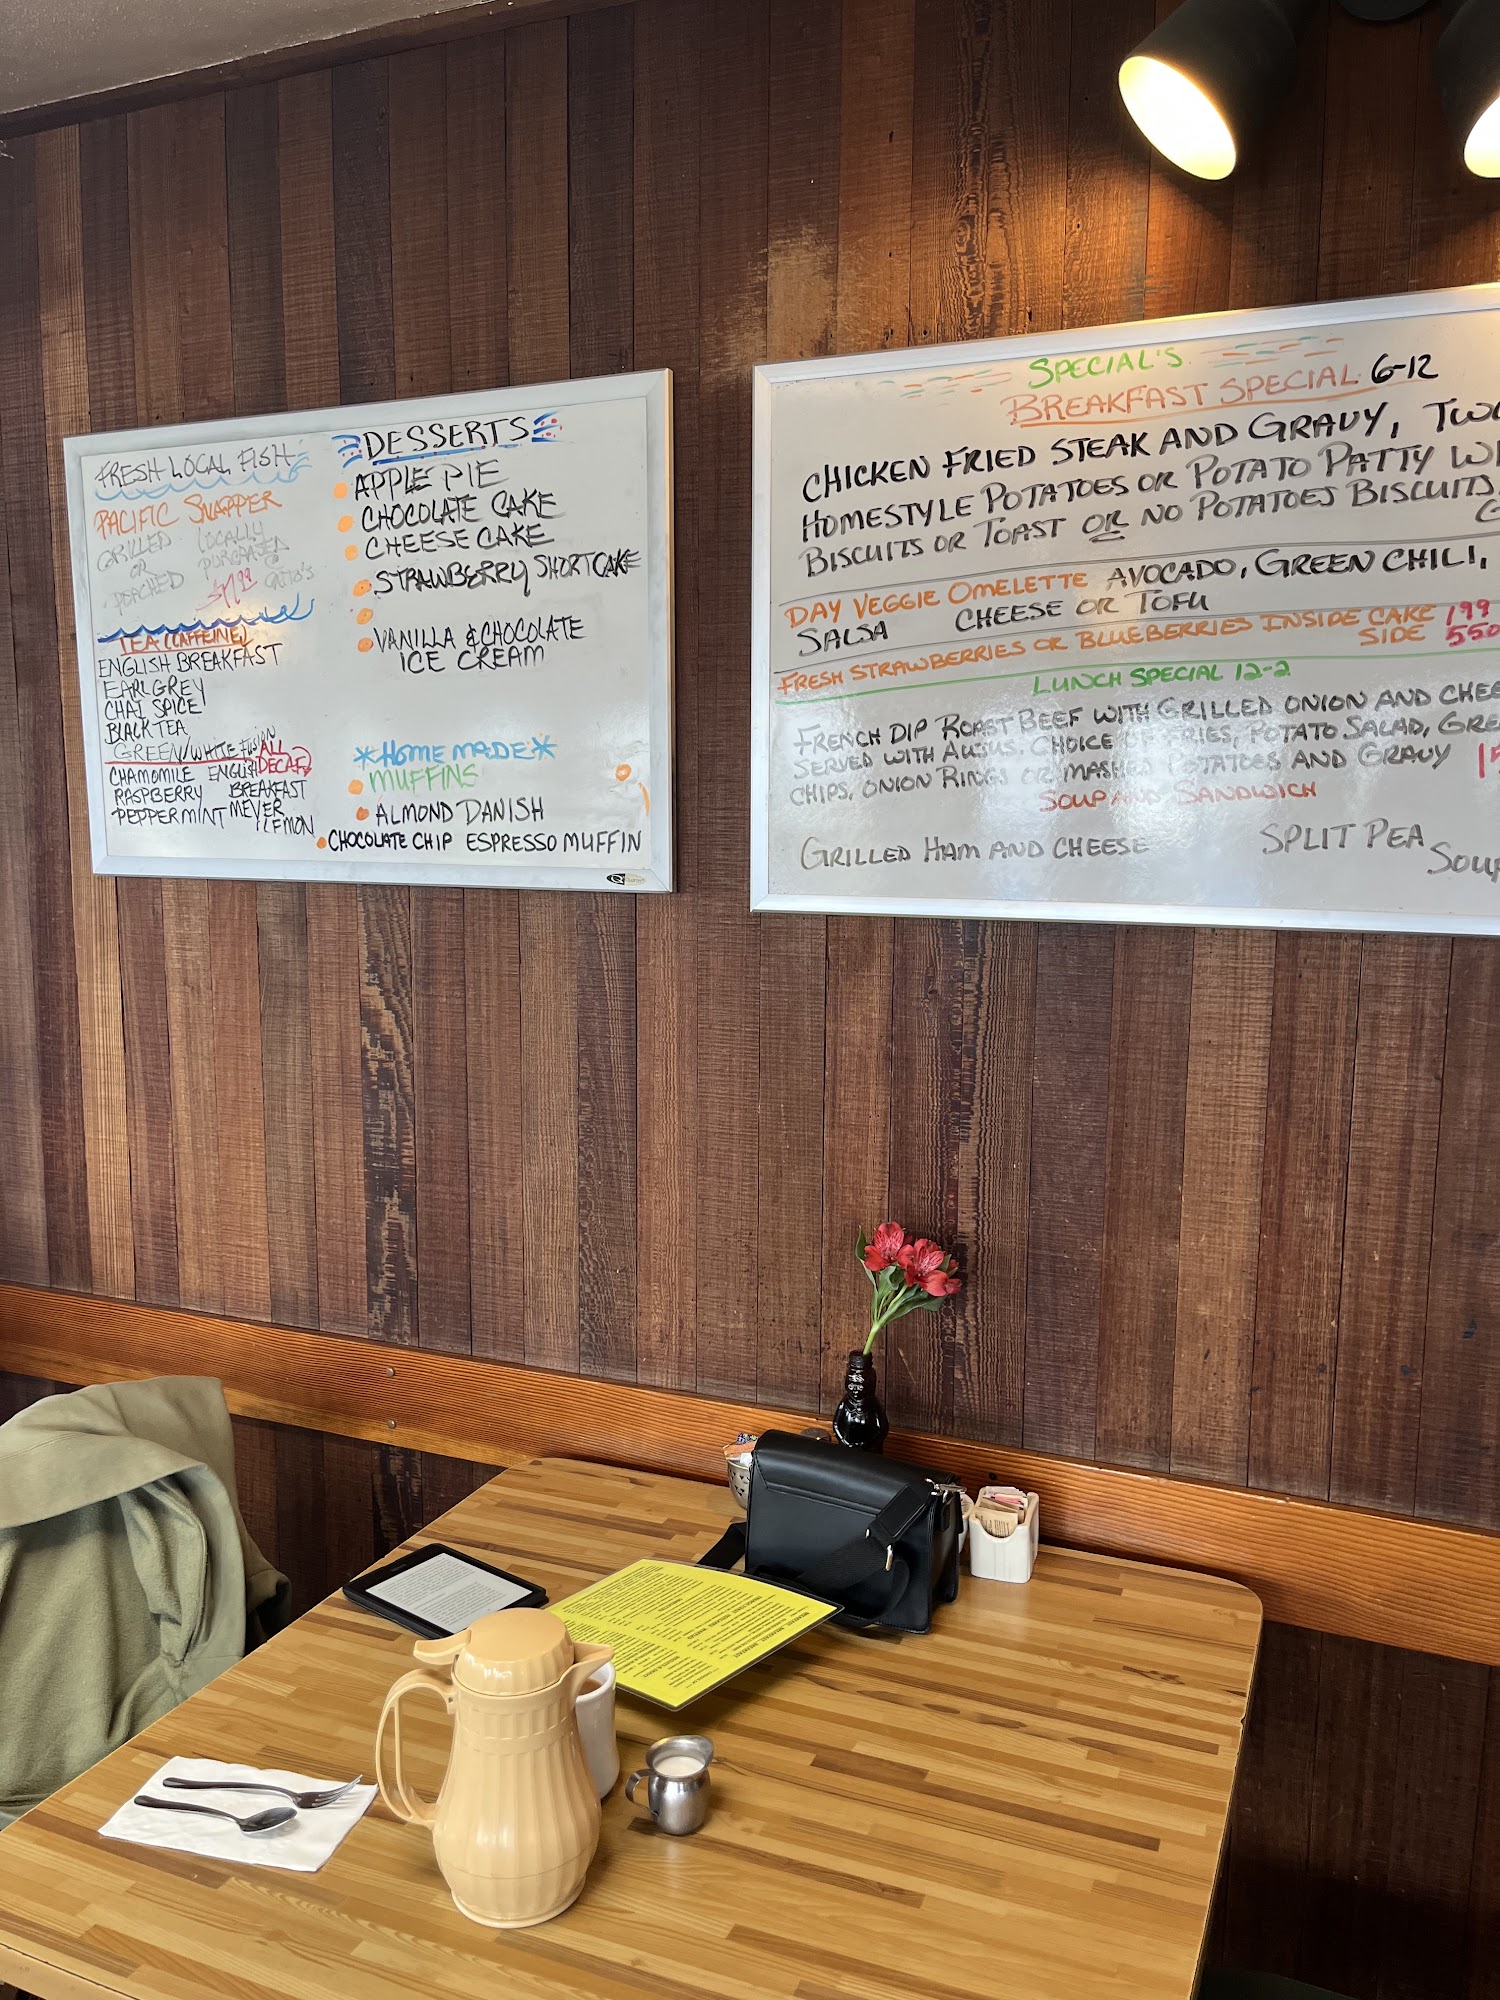 FRESH LOCAL FISH
PACIFIC SNAPPER
GRILLED LOCALLY
OR PURCHASED
POACHED
TEA (CAFFEINE)
ENGLISH BREAKFAST
EARL GREY
CHAI SPICE
BLACK TEA
GREEN/WHITE FUSION
ALL
DECAF
CHAMOMILE ENGLISH
RASPBERRY BREAKFAST
PEPPERMINT MEYER
LEMON
DESSERTS
APPLE PIE
CHOCOLATE CAKE
CHEESE CAKE
STRAWBERRY SHORTCAKE
VANILLA & CHOCOLATE
ICE CREAM
HOME MADE
MUFFINS
ALMOND DANISH
CHOCOLATE CHIP ESPRESSO MUFFIN
SPECIAL'S
BREAKFAST SPECIAL 6-12
CHICKEN FRIED STEAK AND GRAVY,
HOMESTYLE POTATOES OR POTATO PATTY
BISCUITS OR TOAST OR NO POTATOES BISCUITS
DAY VEGGIE OMELETTE AVOCADO, GREEN CHILI,
SALSA CHEESE OR TOFU
FRESH STRAWBERRIES OR BLUEBERRIES INSIDE CAKE 199
SIDE 550
LUNCH SPECIAL 12-2
FRENCH DIP ROAST BEEF WITH GRILLED ONION AND
SERVED WITH AUJUS. CHOICE OF FRIES, POTATO SALAD,
CHIPS, ONION RINGS OR MASHED POTATOES AND GRAVY
SOUP AND SANDWICH
GRILLED HAM AND CHEESE SPLIT PEA
SOUP